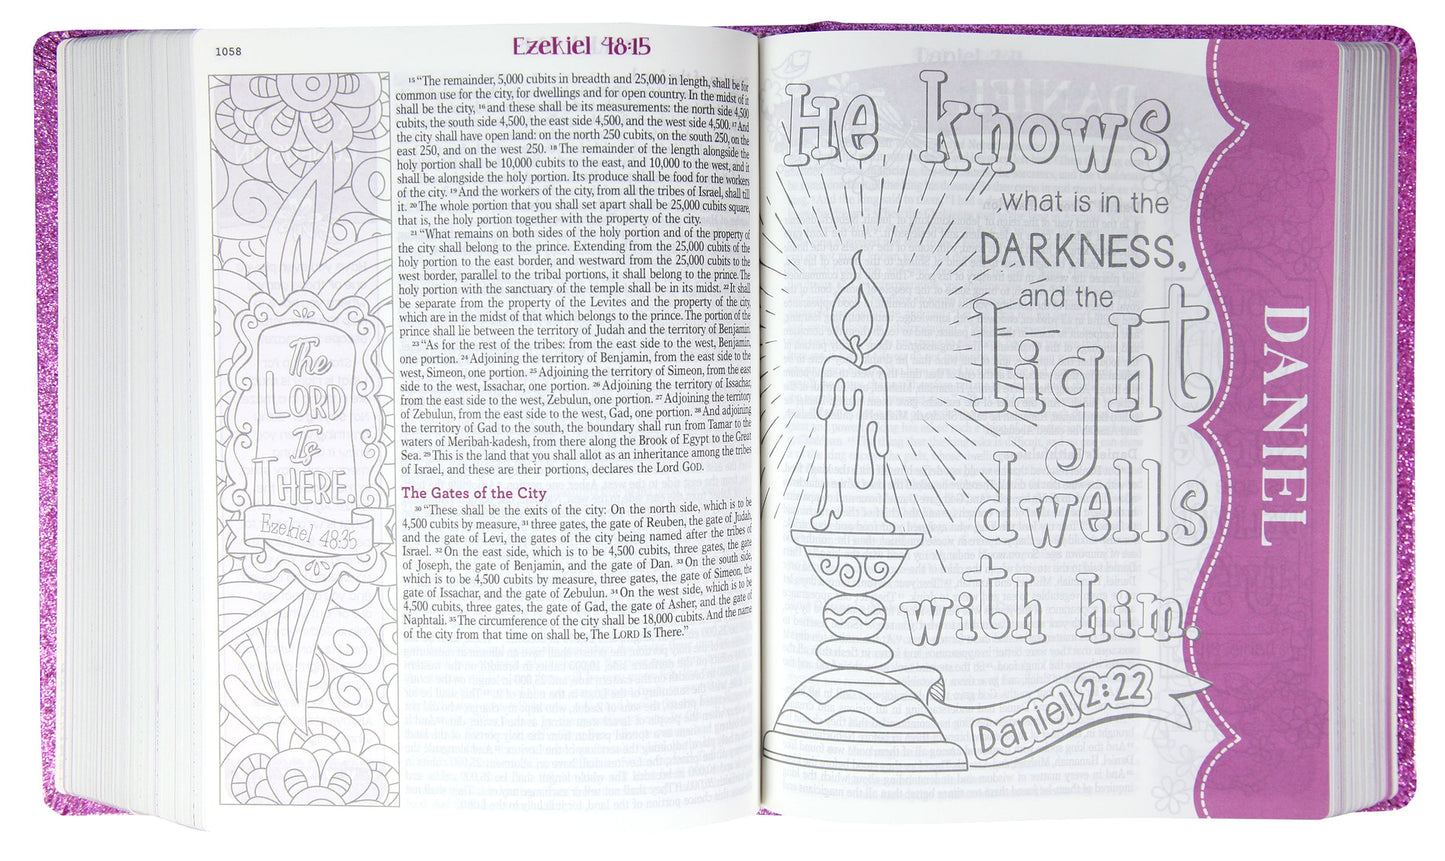 1058
Ezekiel 48:15
The
LORD
Is
THERE.
Ezekiel 48:35
15 “The remainder, 5,000 cubits in breadth and 25,000 in length, shall be for
common use for the city, for dwellings and for open country. In the midst of it
shall be the city, 16 and these shall be its measurements: the north side 4,500
cubits, the south side 4,500, the east side 4,500, and the west side 4,500. 17 And
the city shall have open land: on the north 250 cubits, on the south 250, on the
east 250, and on the west 250. 18 The remainder of the length alongside the
holy portion shall be 10,000 cubits to the east, and 10,000 to the west, and it
shall be alongside the holy portion. Its produce shall be food for the workers
of the city. 19 And the workers of the city, from all the tribes of Israel, shall till
it. 20 The whole portion that you shall set apart shall be 25,000 cubits square,
that is, the holy portion together with the property of the city.
21 “What remains on both sides of the holy portion and of the property of
the city shall belong to the prince. Extending from the 25,000 cubits of the
holy portion to the east border, and westward from the 25,000 cubits to the
west border, parallel to the tribal portions, it shall belong to the prince. The
holy portion with the sanctuary of the temple shall be in its midst. 22 It shall
be separate from the property of the Levites and the property of the city,
which are in the midst of that which belongs to the prince. The portion of the
prince shall lie between the territory of Judah and the territory of Benjamin.
23 “As for the rest of the tribes: from the east side to the west, Benjamin,
one portion. 24 Adjoining the territory of Benjamin, from the east side to the
west, Simeon, one portion. 25 Adjoining the territory of Simeon, from the east
side to the west, Issachar, one portion. 26 Adjoining the territory of Issachar,
from the east side to the west, Zebulun, one portion. 27 Adjoining the territory
of Zebulun, from the east side to the west, Gad, one portion. 28 And adjoining
the territory of Gad to the south, the boundary shall run from Tamar to the
waters of Meribah-kadesh, from there along the Brook of Egypt to the Great
Sea. 29 This is the land that you shall allot as an inheritance among the tribes
of Israel, and these are their portions, declares the Lord GOD.
The Gates of the City
30 “These shall be the exits of the city: On the north side, which is to be
4,500 cubits by measure, 31 three gates, the gate of Reuben, the gate of Judah,
and the gate of Levi, the gates of the city being named after the tribes of
Israel. 32 On the east side, which is to be 4,500 cubits, three gates, the gate
of Joseph, the gate of Benjamin, and the gate of Dan. 33 On the south side,
which is to be 4,500 cubits by measure, three gates, the gate of Simeon, the
gate of Issachar, and the gate of Zebulun. 34 On the west side, which is to be
4,500 cubits, three gates, the gate of Gad, the gate of Asher, and the gate of
Naphtali. 35 The circumference of the city shall be 18,000 cubits. And the name
of the city from that time on shall be, The LORD Is There.”
He knows
what is in the
DARKNESS,
and the
light
dwells
with him.
Daniel 2:22
DANIEL